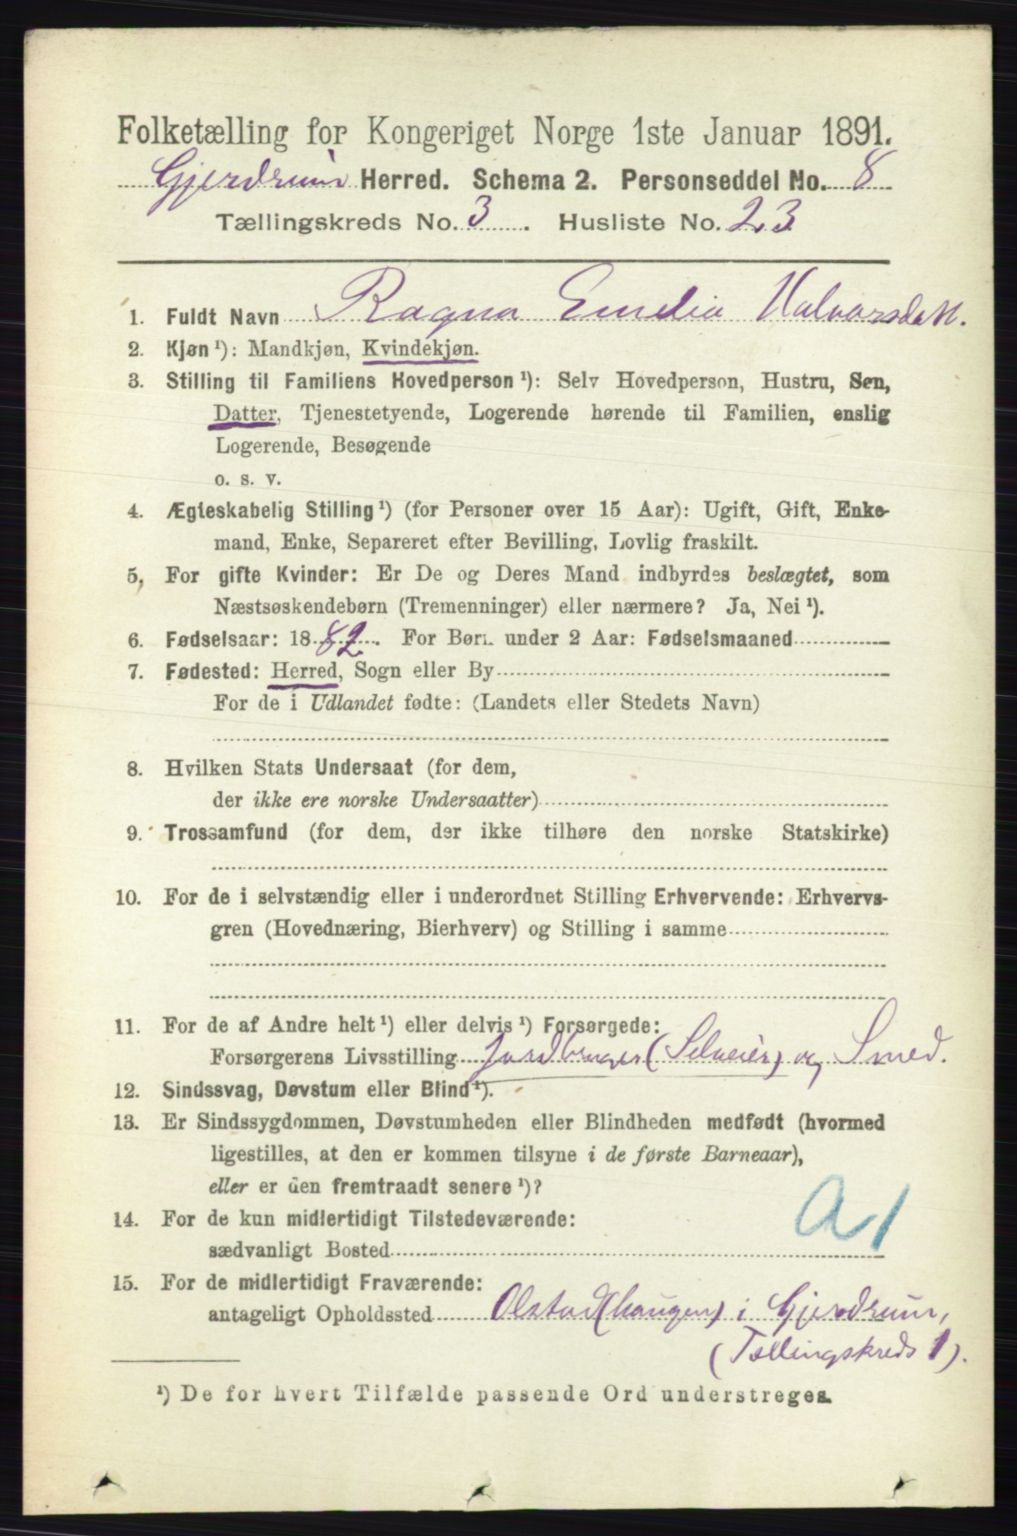 Folketælling for Kongeriget Norge 1ste Januar 1891.
Gjerdrum Herred. Schema 2. Personseddel No. 8
Tællingskreds No. 3. Husliste No. 23
1. Fuldt Navn Ragna Emilia Halvorsdatt.
2. Kjøn ¹): Mandkjøn, Kvindekjøn.
3. Stilling til Familiens Hovedperson ¹): Selv Hovedperson, Hustru, Søn,
Datter, Tjenestetyende, Logerende hørende til Familien, enslig
Logerende, Besøgende
o. s. v.
4. Ægteskabelig Stilling ¹) (for Personer over 15 Aar): Ugift, Gift, Enke-
mand, Enke, Separeret efter Bevilling, Lovlig fraskilt.
5, For gifte Kvinder: Er De og Deres Mand indbyrdes beslægtet, som
Næstsøskendebørn (Tremenninger) eller nærmere? Ja, Nei ¹).
6. Fødselsaar: 1882. For Børn under 2 Aar: Fødselsmaaned
7. Fødested: Herred, Sogn eller By
For de i Udlandet fødte: (Landets eller Stedets Navn)
8. Hvilken Stats Undersaat (for dem,
der ikke ere norske Undersaatter)
9. Trossamfund (for dem, der ikke tilhøre den norske Statskirke)
10. For de i selvstændig eller i underordnet Stilling Erhvervende: Erhvervs-
gren (Hovednæring, Bierhverv) og Stilling i samme
11. For de af Andre helt ¹) eller delvis ¹) Forsørgede:
Forsørgerens Livsstilling Jordbruger (Selveier) og Smed.
12. Sindssvag, Døvstum eller Blind ¹).
13. Er Sindssygdommen, Døvstumheden eller Blindheden medfødt (hvormed
ligestilles, at den er kommen tilsyne i de første Barneaar),
eller er den fremtraadt senere ¹)?
a1
14. For de kun midlertidigt Tilstedeværende:
sædvanligt Bosted
15. For de midlertidigt Fraværende:
antageligt Opholdssted Olstad (haugen) i Gjerdrum,
(Tællingskreds 1).
¹) De for hvert Tilfælde passende Ord understreges.